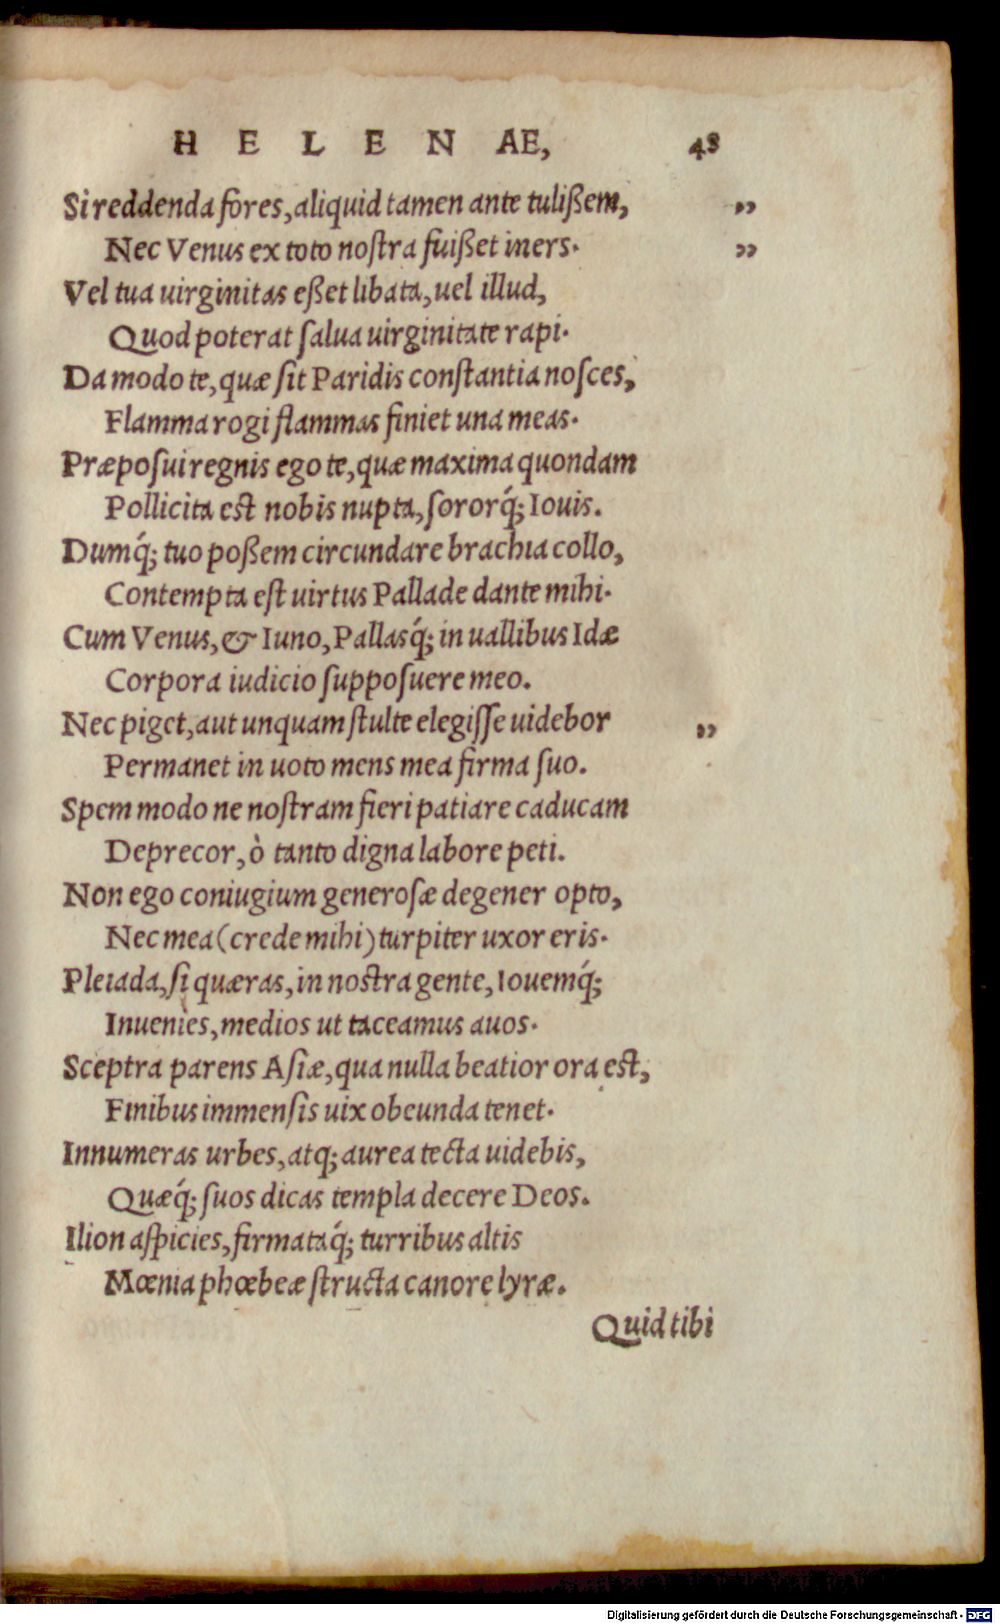 H E L E N AE, 48
Si reddenda fores, aliquid tamen ante tulißem, „
Nec Venus ex toto nostra fuißet iners. „
Vel tua uirginitas eßet libata, uel illud,
Quod poterat salua uirginitate rapi.
Da modo te, quæ sit Paridis constantia nosces,
Flamma rogi flammas finiet una meas.
Præposui regnis ego te, quæ maxima quondam
Pollicita est nobis nupta, sororq́; Iouis.
Dumq́; tuo poßem circundare brachia collo,
Contempta est uirtus Pallade dante mihi.
Cum Venus, & Iuno, Pallasq́; in uallibus Idæ
Corpora iudicio supposuere meo.
Nec piget, aut unquam stulte elegisse uidebor „
Permanet in uoto mens mea firma suo.
Spem modo ne nostram fieri patiare caducam
Deprecor, ò tanto digna labore peti.
Non ego coniugium generosæ degener opto,
Nec mea (crede mihi) turpiter uxor eris.
Pleiada, si quæras, in nostra gente, Iouemq́;
Inuenies, medios ut taceamus auos.
Sceptra parens Asiæ, qua nulla beatior ora est,
Finibus immensis uix obeunda tenet.
Innumeras urbes, atq; aurea tecta uidebis,
Quæq́; suos dicas templa decere Deos.
Ilion aspicies, firmataq́; turribus altis
Mœnia phœbeæ structa canore lyræ.
Quid tibi
Digitalisierung gefördert durch die Deutsche Forschungsgemeinschaft - DFG